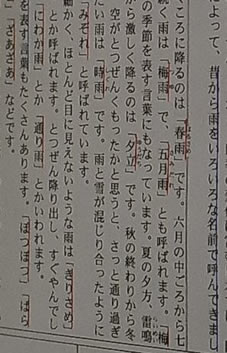 によって、昔から雨をいろいろな名前で呼んできまし
ごろに降るのは「春雨」です。六月の中ごろから七
続く雨は「梅雨」で、「五月雨」とも呼ばれます。梅
の季節を表す言葉にもなっています。夏の夕方、雷鳴
から激しく降るのは「夕立」です。秋の終わりから冬
空がとつぜんくもったかと思うと、さっと通り過ぎ
たい雨は「時雨」です。雨と雪が混じり合ったように
「みぞれ」と呼ばれています。
細かく、ほとんど目に見えないような雨は「きりさめ」
とか呼ばれます。とつぜん降り出し、すぐやんでし
「にわか雨」とか「通り雨」とかいわれます。
を表す言葉もたくさんあります。「ぽつぽつ」「ぱら
「ざあざあ」などです。